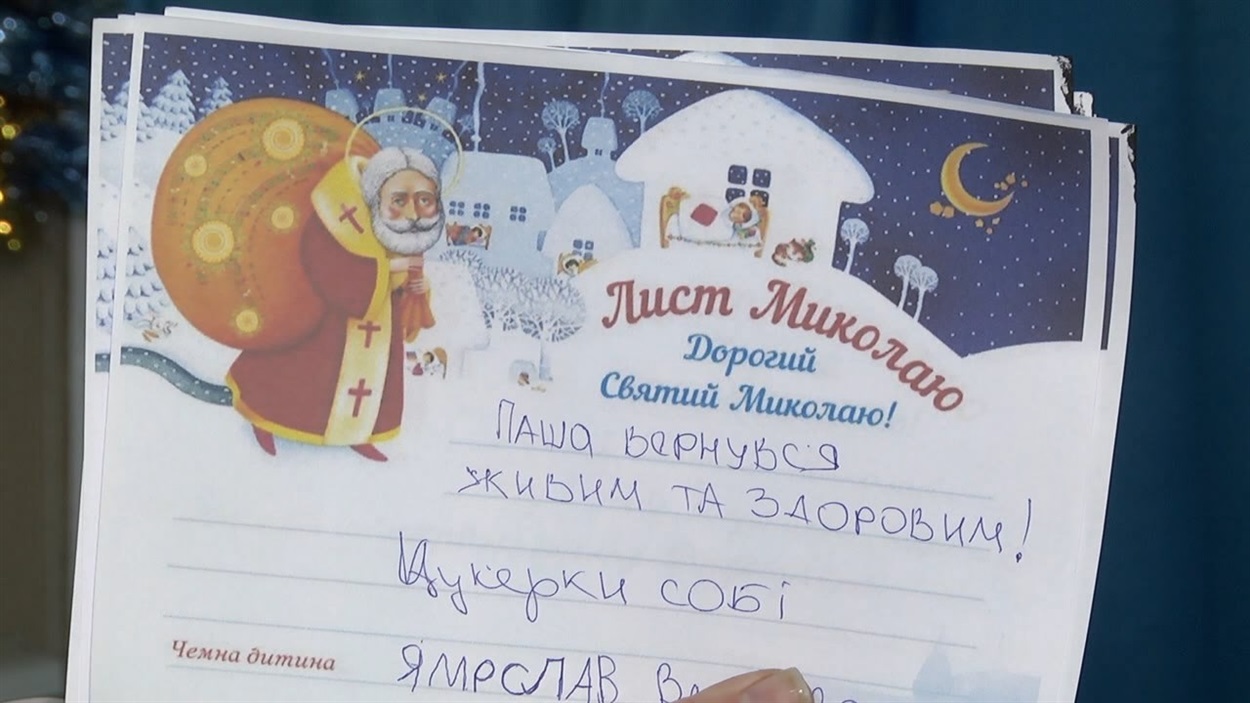 Лист Миколаю
Дорогий
Святий Миколаю!
Паша вернувся
живим та здоровим!
Цукерки собі
Чемна дитина
Ярослав